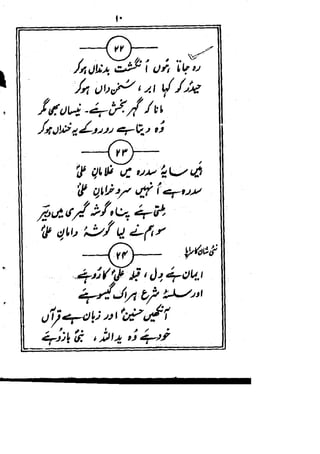 ۱۰
۲۲
رہ جاتا ہوں انگشت بدنداں ہوکر
حیدرؑ کو کہا ابر، سخن داں ہوکر
مانا کہ گہر بخش ہے۔ نیساں بھی مگر
وہ دیتا ہے رو رو کے یہ خنداں ہوکر
۲۳
ہیں سایۂ سدرہ میں غلامانِ علیؑ
سدرہ ہے انہیں سروِ خرامانِ علیؑ
ملتی ہے پناہ گوشہ گیری میں دبیرؔ
سو ہم نے لیا گوشۂ دامانِ علیؑ
۲۴
نئی شان کا سراپا
ایمان ہے دل، قبلہ علیؑ کا رُو ہے
اور سلسلۂ شرع ہر اک گیسو ہے
آنکھیں حسنینؑ اور زبان ہے قرآں
خود ہے وہ یداللہ، نبیؐ بازو ہے